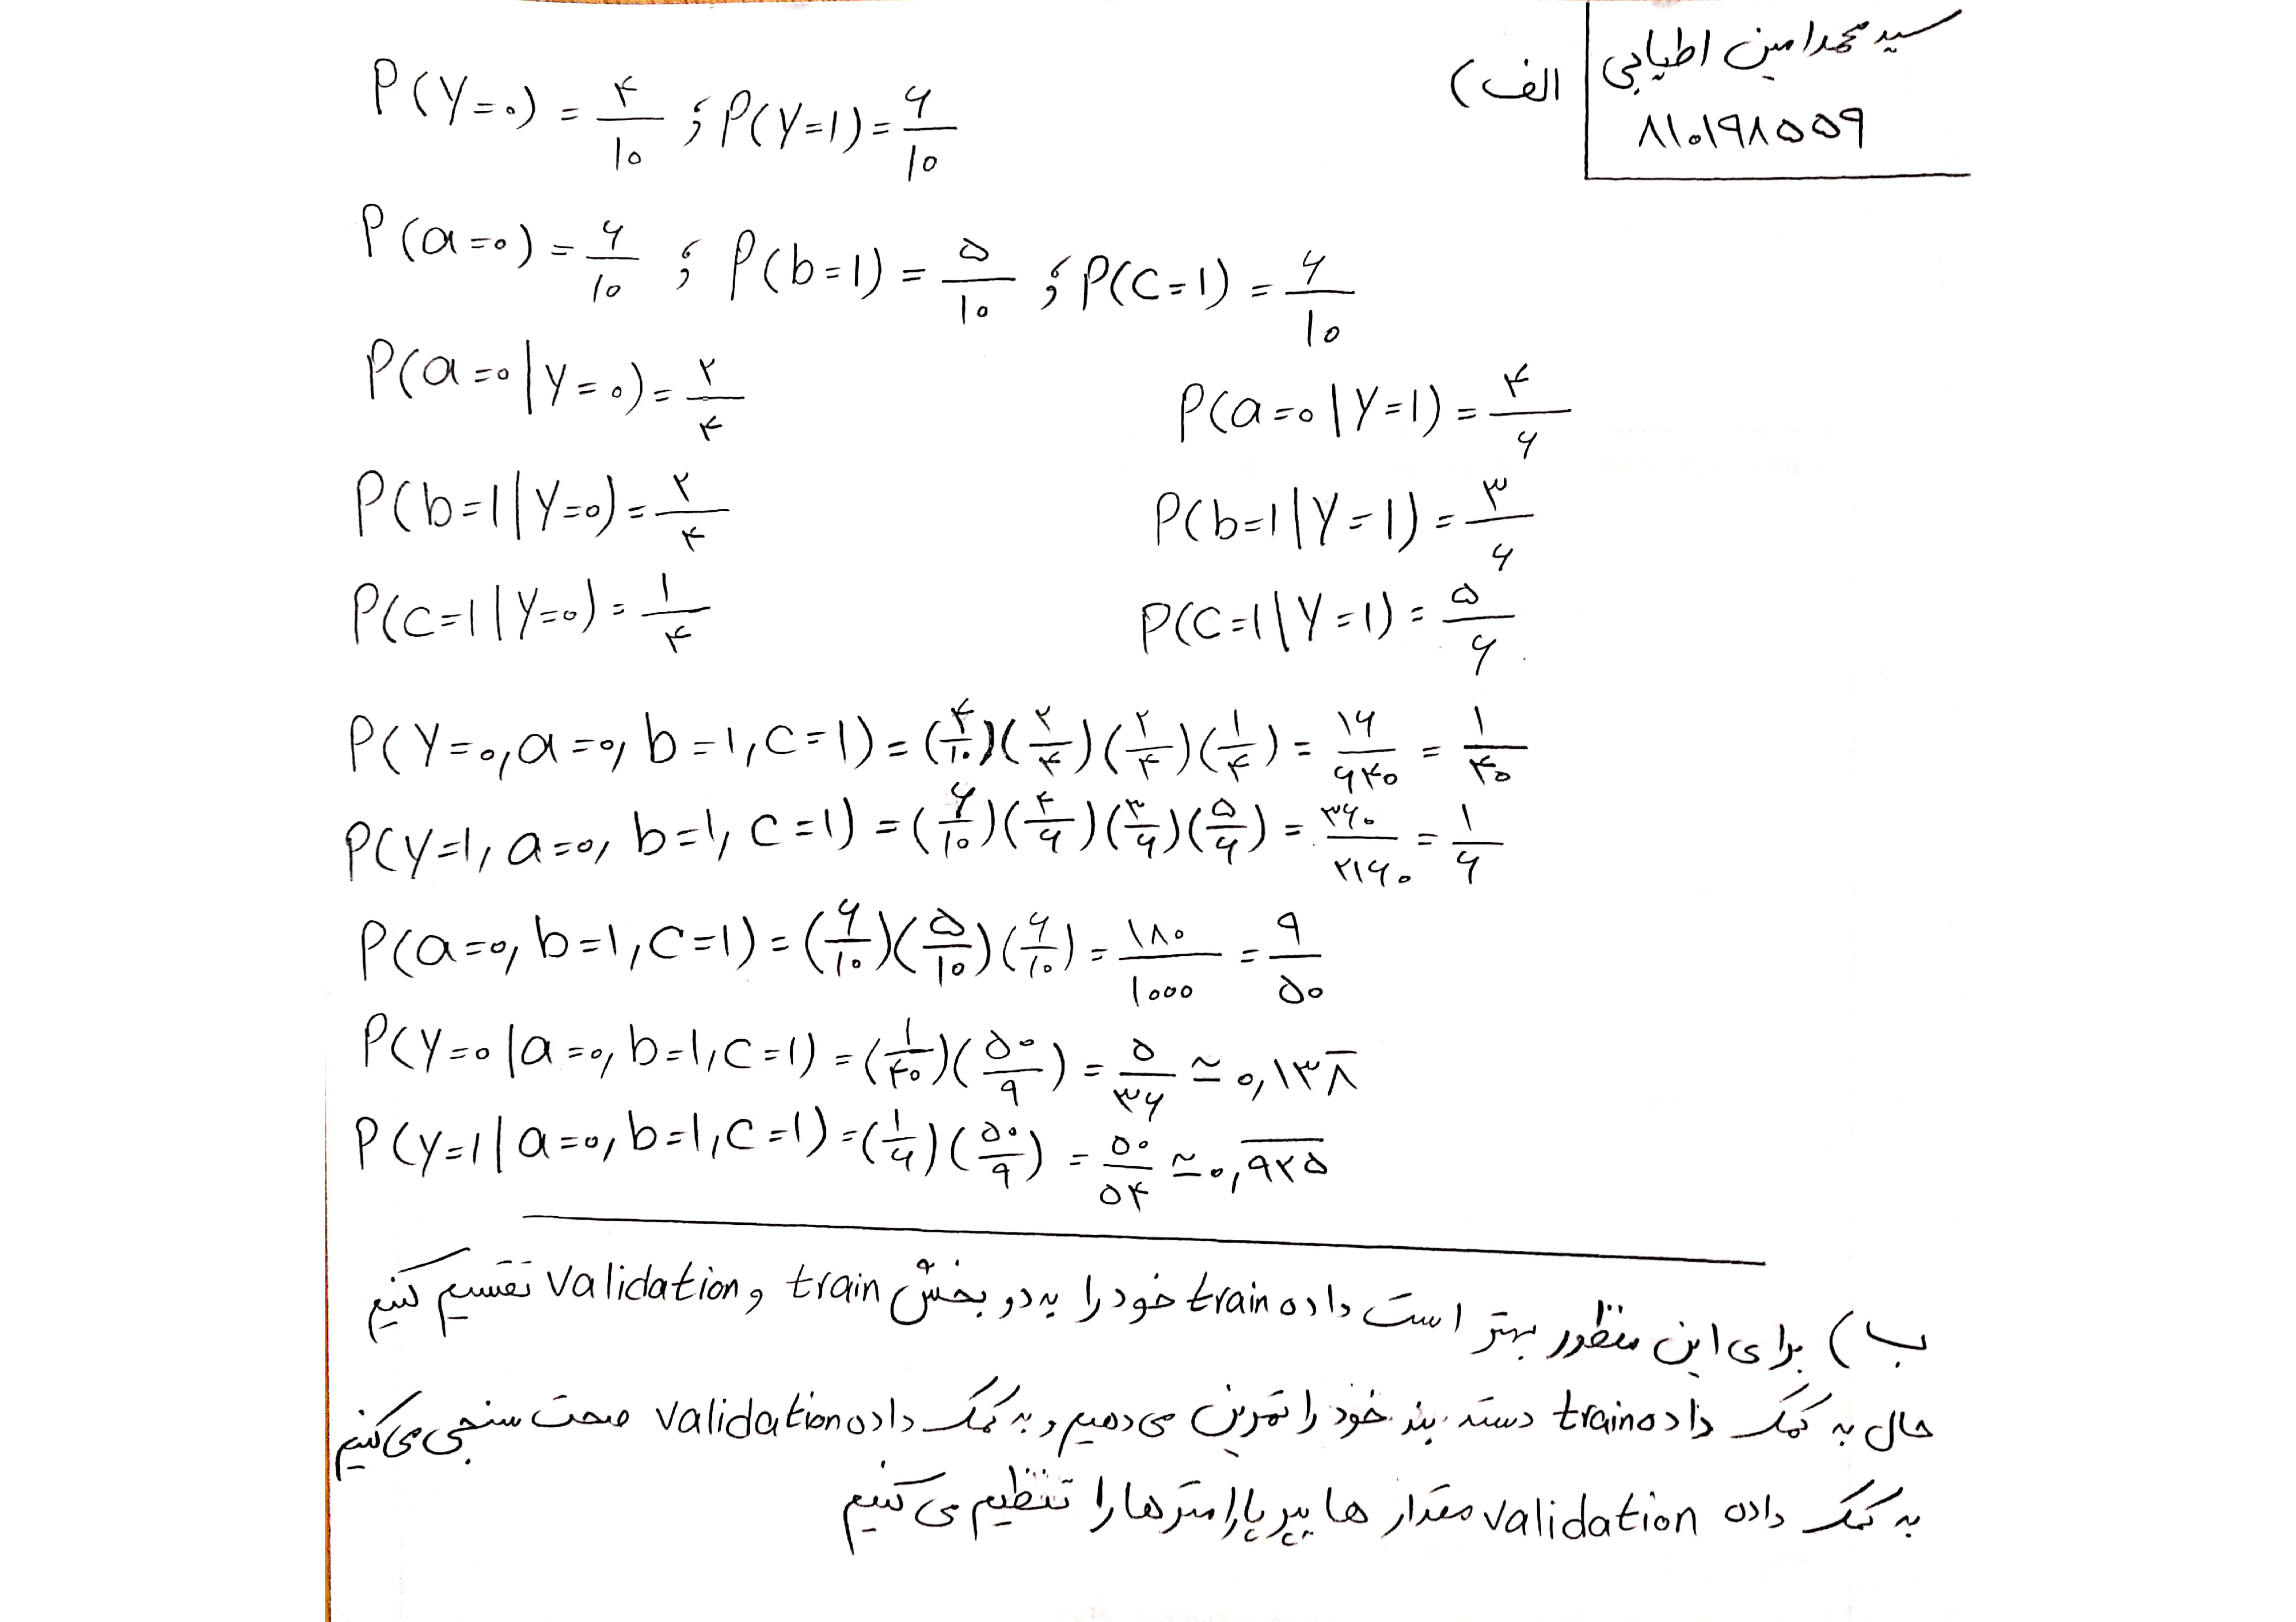 سید محمدامین اطیابی
۸۱۰۱۹۸۵۵۹
الف)
P(Y=۰) = ۴/۱۰ ; P(Y=۱) = ۶/۱۰
P(a=۰) = ۶/۱۰ ; P(b=۱) = ۵/۱۰ ; P(C=۱) = ۶/۱۰
P(a=۰|Y=۰) = ۲/۴ P(a=۰|Y=۱) = ۴/۶
P(b=۱|Y=۰) = ۲/۴ P(b=۱|Y=۱) = ۳/۶
P(C=۱|Y=۰) = ۱/۴ P(C=۱|Y=۱) = ۵/۶
P(Y=۰, a=۰, b=۱, C=۱) = (۴/۱۰)(۲/۴)(۲/۴)(۱/۴) = ۱۶/۶۴۰ = ۱/۴۰
P(Y=۱, a=۰, b=۱, C=۱) = (۶/۱۰)(۴/۶)(۳/۶)(۵/۶) = ۳۶۰/۲۱۶۰ = ۱/۶
P(a=۰, b=۱, C=۱) = (۶/۱۰)(۵/۱۰)(۶/۱۰) = ۱۸۰/۱۰۰۰ = ۹/۵۰
P(Y=۰|a=۰, b=۱, C=۱) = (۱/۴۰)(۵۰/۹) = ۵/۳۶ ≃ ۰,۱۳۸̅
P(Y=۱|a=۰, b=۱, C=۱) = (۱/۶)(۵۰/۹) = ۵۰/۵۴ ≃ ۰,۹̅۲̅۵̅
ب) برای این منظور بهتر است داده train خود را به دو بخش train و validation تقسیم کنیم
حال به کمک داده train دسته بند خود را تمرین می دهیم و به کمک داده validation صحت سنجی می کنیم
به کمک داده validation مقدار هایپر پارامترها را تنظیم می کنیم